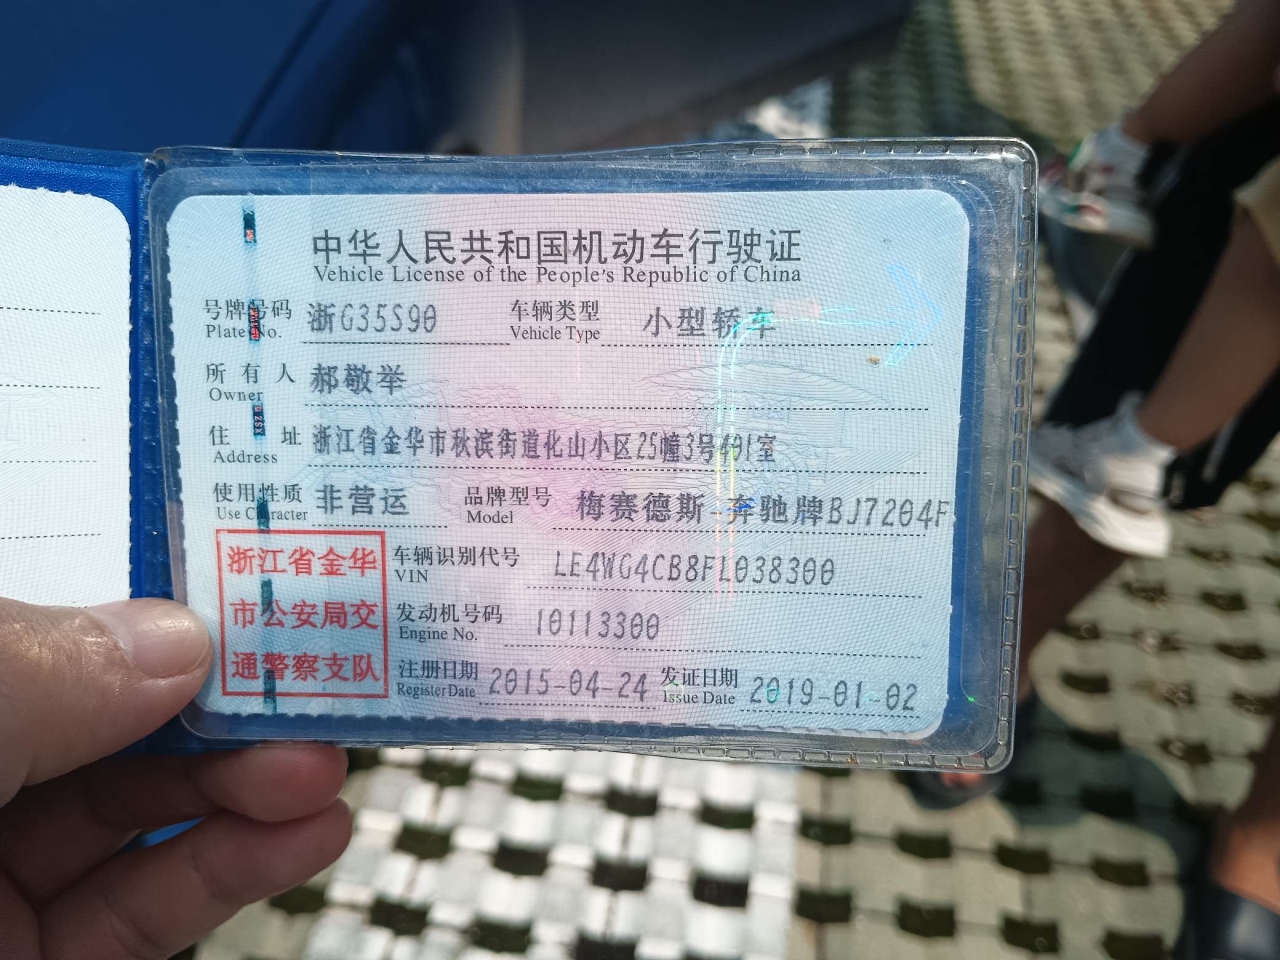 中华人民共和国机动车行驶证
Vehicle License of the People's Republic of China
号牌号码 浙G35S90 车辆类型 小型轿车
Plate No. Vehicle Type
所有人 郝敬举
Owner
住址 浙江省金华市秋滨街道化山小区25幢3号401室
Address
使用性质 非营运 品牌型号 梅赛德斯-奔驰牌BJ7204F
Use Character Model
浙江省金华
市公安局交
通警察支队
车辆识别代号 LE4WG4CB8FL038300
VIN
发动机号码 10113300
Engine No.
注册日期 2015-04-24 发证日期 2019-01-02
Register Date Issue Date